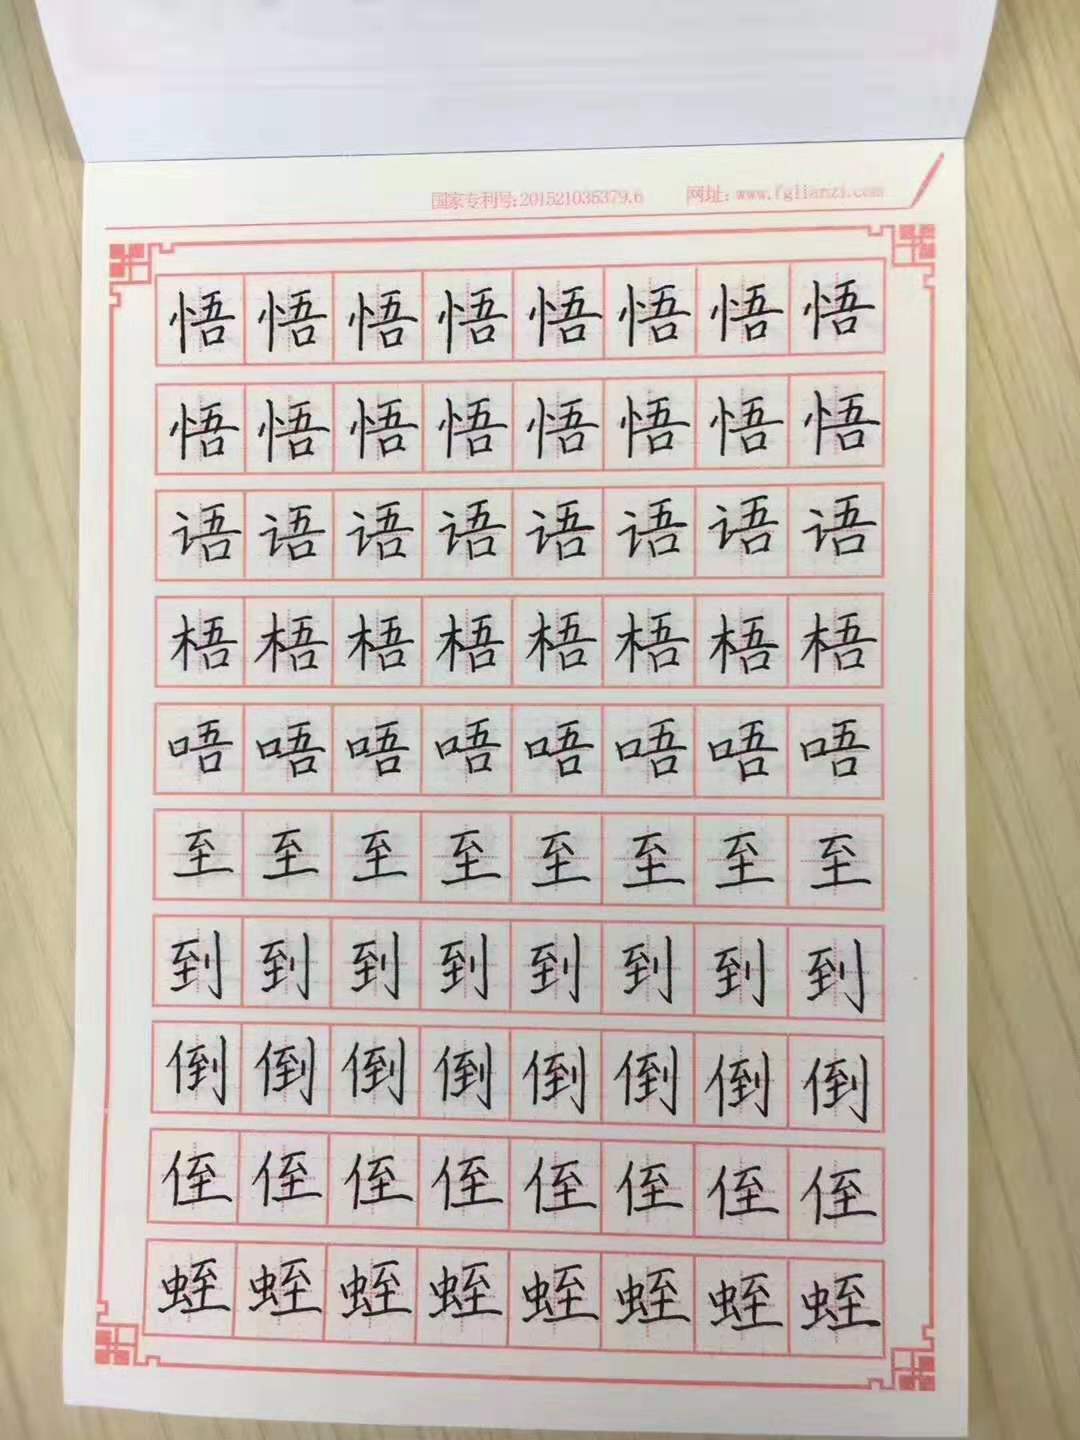 国家专利号:201521035379.6 网址：www.fglianzi.com
悟悟悟悟悟悟悟悟
悟悟悟悟悟悟悟悟
语语语语语语语语
梧梧梧梧梧梧梧梧
唔唔唔唔唔唔唔唔
至至至至至至至至
到到到到到到到到
倒倒倒倒倒倒倒倒
侄侄侄侄侄侄侄侄
蛭蛭蛭蛭蛭蛭蛭蛭